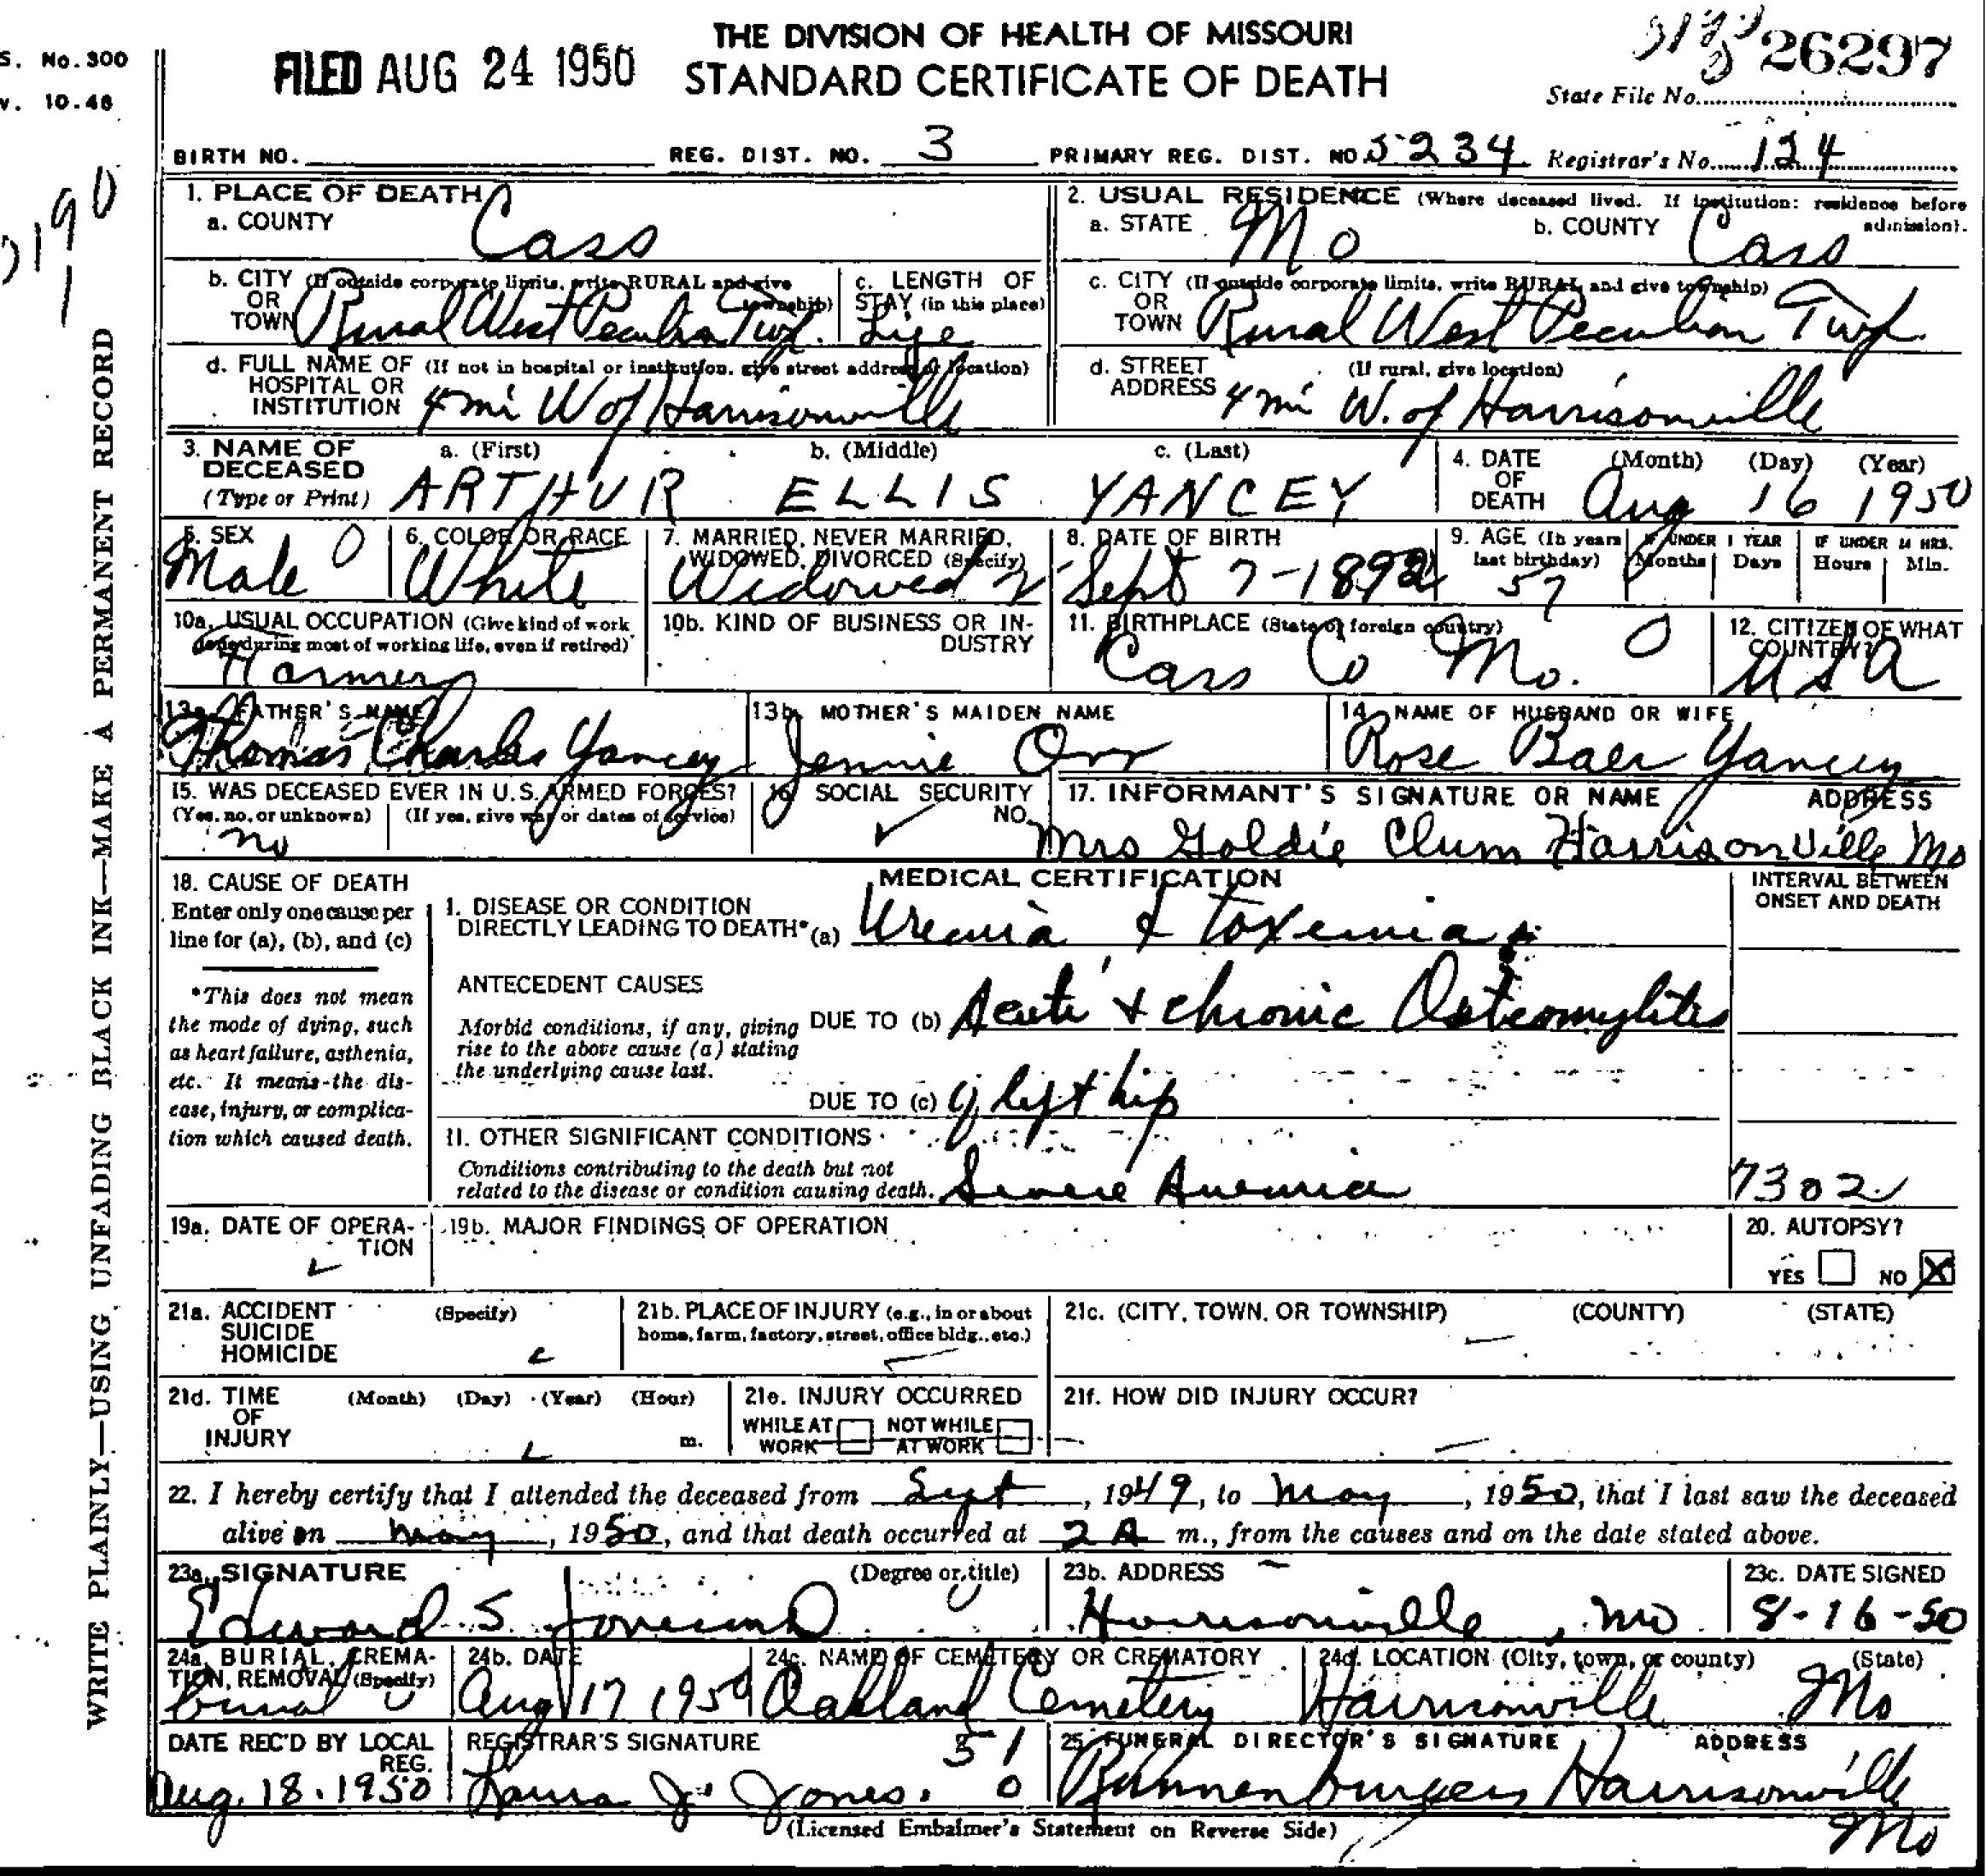 THE DIVISION OF HEALTH OF MISSOURI
STANDARD CERTIFICATE OF DEATH
FILED AUG 24 1950
S. No. 300
v. 10.48
26297
State File No.
BIRTH NO. REG. DIST. NO. 3 PRIMARY REG. DIST. NO. 5234 Registrar's No. 124
WRITE PLAINLY—USING UNFADING BLACK INK—MAKE A PERMANENT RECORD
1. PLACE OF DEATH
a. COUNTY Cass
2. USUAL RESIDENCE (Where deceased lived. If institution: residence before admission).
a. STATE Mo b. COUNTY Cass
b. CITY (If outside corporate limits, write RURAL and give township) OR TOWN Rural West Peculiar Twp.
c. LENGTH OF STAY (in this place) Life
c. CITY (If outside corporate limits, write RURAL and give township) OR TOWN Rural West Peculiar Twp
d. FULL NAME OF (If not in hospital or institution, give street address or location) HOSPITAL OR INSTITUTION 4 mi W of Harrisonville
d. STREET ADDRESS (If rural, give location) 4 mi W. of Harrisonville
3. NAME OF DECEASED (Type or Print) a. (First) ARTHUR b. (Middle) ELLIS c. (Last) YANCEY
4. DATE OF DEATH (Month) (Day) (Year) Aug 16 1950
5. SEX Male 0
6. COLOR OR RACE White
7. MARRIED, NEVER MARRIED, WIDOWED, DIVORCED (Specify) Widowed 2
8. DATE OF BIRTH Sept 7-1892
9. AGE (In years last birthday) 57 IF UNDER 1 YEAR Months Days IF UNDER 24 HRS. Hours Min.
10a. USUAL OCCUPATION (Give kind of work done during most of working life, even if retired) Farmer
10b. KIND OF BUSINESS OR INDUSTRY
11. BIRTHPLACE (State or foreign country) Cass Co Mo. 0
12. CITIZEN OF WHAT COUNTRY? USA
13a. FATHER'S NAME Thomas Charles Yancey
13b. MOTHER'S MAIDEN NAME Jennie Orr
14. NAME OF HUSBAND OR WIFE Rose Baer Yancey
15. WAS DECEASED EVER IN U.S. ARMED FORCES? (Yes, no, or unknown) (If yes, give war or dates of service) no
16. SOCIAL SECURITY NO.
17. INFORMANT'S SIGNATURE OR NAME ADDRESS
Mrs Goldie Clum Harrisonville Mo
18. CAUSE OF DEATH
Enter only one cause per line for (a), (b), and (c)
*This does not mean the mode of dying, such as heart failure, asthenia, etc. It means the disease, injury, or complication which caused death.
MEDICAL CERTIFICATION
INTERVAL BETWEEN ONSET AND DEATH
I. DISEASE OR CONDITION DIRECTLY LEADING TO DEATH* (a) Uremia & toxemia
ANTECEDENT CAUSES
Morbid conditions, if any, giving rise to the above cause (a) stating the underlying cause last.
DUE TO (b) Acute & chronic Osteomylitis
DUE TO (c) of left hip
II. OTHER SIGNIFICANT CONDITIONS
Conditions contributing to the death but not related to the disease or condition causing death. Severe Anemia
7302
19a. DATE OF OPERATION
19b. MAJOR FINDINGS OF OPERATION
20. AUTOPSY? YES NO X
21a. ACCIDENT SUICIDE HOMICIDE (Specify)
21b. PLACE OF INJURY (e.g., in or about home, farm, factory, street, office bldg., etc.)
21c. (CITY, TOWN, OR TOWNSHIP) (COUNTY) (STATE)
21d. TIME OF INJURY (Month) (Day) (Year) (Hour) m.
21e. INJURY OCCURRED WHILE AT WORK NOT WHILE AT WORK
21f. HOW DID INJURY OCCUR?
22. I hereby certify that I attended the deceased from Sept, 1949, to May, 1950, that I last saw the deceased
alive on May, 1950, and that death occurred at 2 A m., from the causes and on the date stated above.
23a. SIGNATURE (Degree or title) Edward S. Jones MD
23b. ADDRESS Harrisonville, Mo
23c. DATE SIGNED 8-16-50
24a. BURIAL, CREMATION, REMOVAL (Specify) burial
24b. DATE Aug 17 1950
24c. NAME OF CEMETERY OR CREMATORY Oakland Cemetery
24d. LOCATION (City, town, or county) (State) Harrisonville Mo
DATE REC'D BY LOCAL REG. Aug. 18. 1950
REGISTRAR'S SIGNATURE Laura J. Jones.
51
0
25. FUNERAL DIRECTOR'S SIGNATURE ADDRESS
Runnenburgers Harrisonville Mo
(Licensed Embalmer's Statement on Reverse Side)